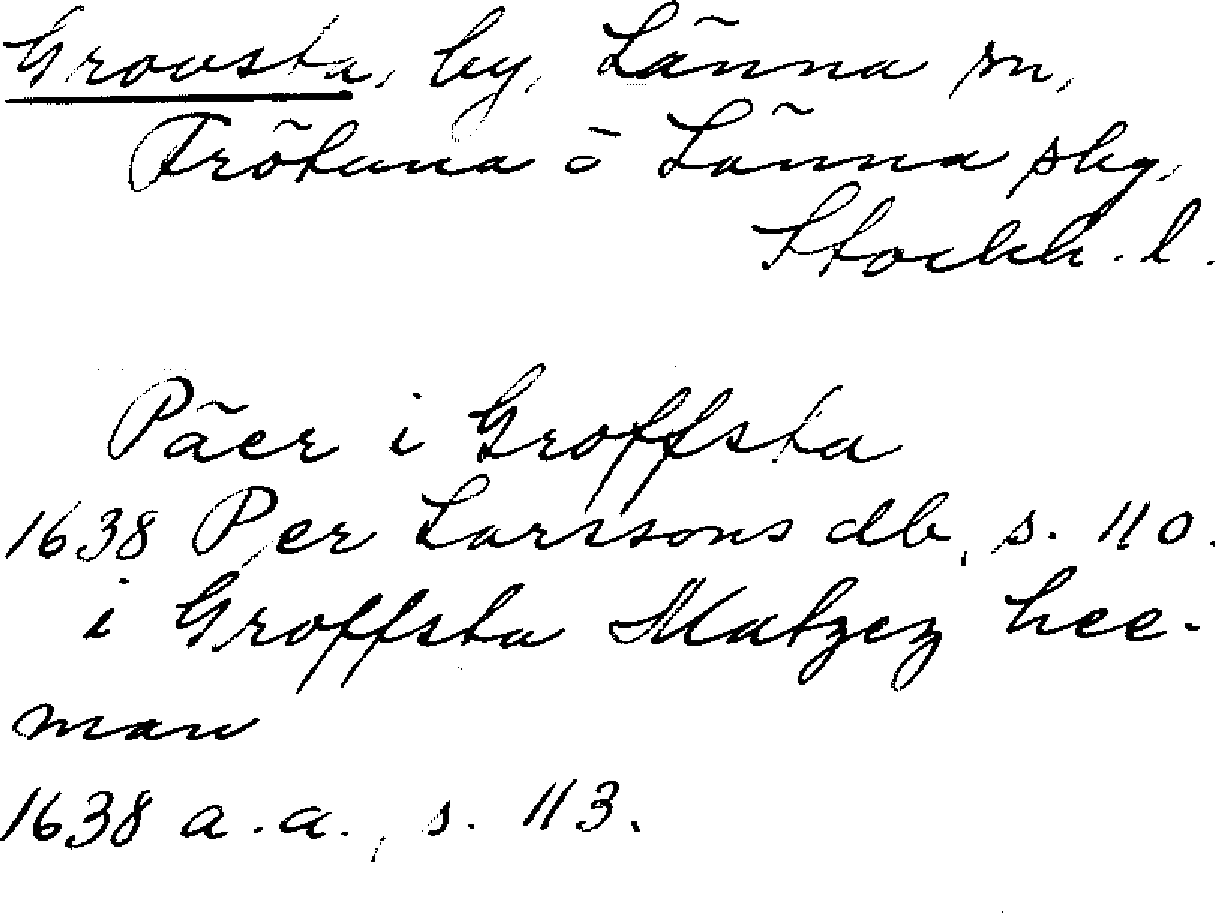 Grovsta, by, Länna sn,
Frötuna o Länna skg.
Stockh. l.
Päer i Groffsta
1638 Per Larssons db, s. 110.
i Groffsta Matzez hee-
man
1638 a.a., s. 113.